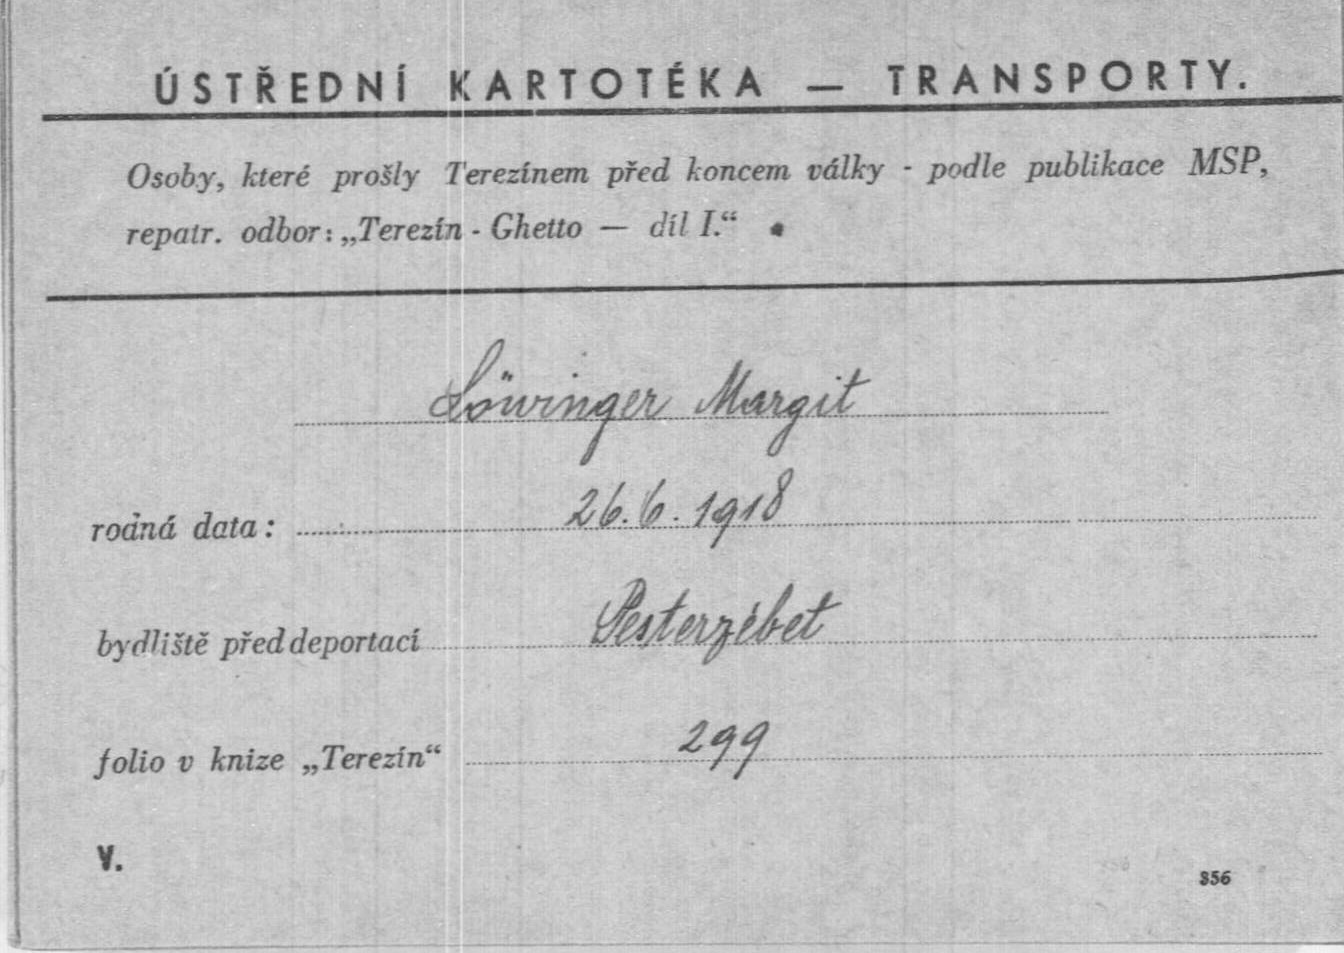 ÚSTŘEDNÍ KARTOTÉKA — TRANSPORTY.
Osoby, které prošly Terezínem před koncem války - podle publikace MSP,
repatr. odbor: „Terezín - Ghetto — díl I.“
Löwinger Margit
rodná data: 26.6.1918
bydliště před deportací Pesterzébet
folio v knize „Terezín“ 299
V.
856